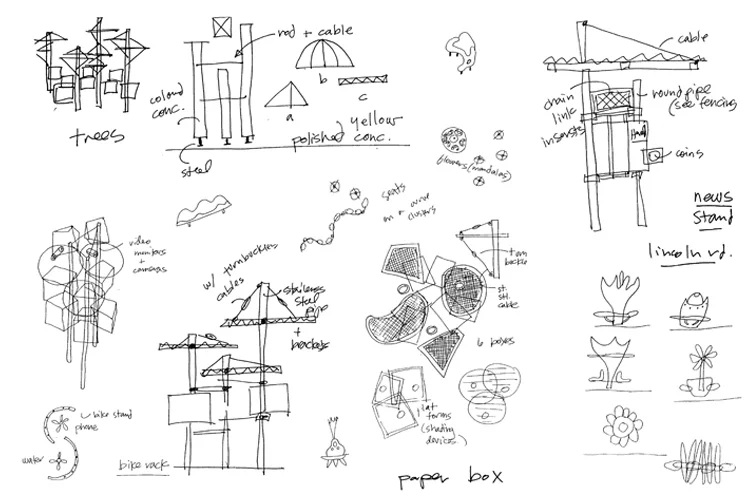 trees
rod + cable
colored
conc.
a
b
c
yellow
polished conc.
steel
cable
chain
link
inserts
round pipe
(see fencing
coins
news
stand
lincoln rd.
flowers (mandalas)
seats
on a wire
clusters
video
monitors
+
cameras
w/ turnbuckles
cables
stainless
steel
+
brackets
turn
buckle
st.
stl.
cable
6 boxes
flat
forms
(shading
devices)
bike stand
phone
water
bike rack
paper box